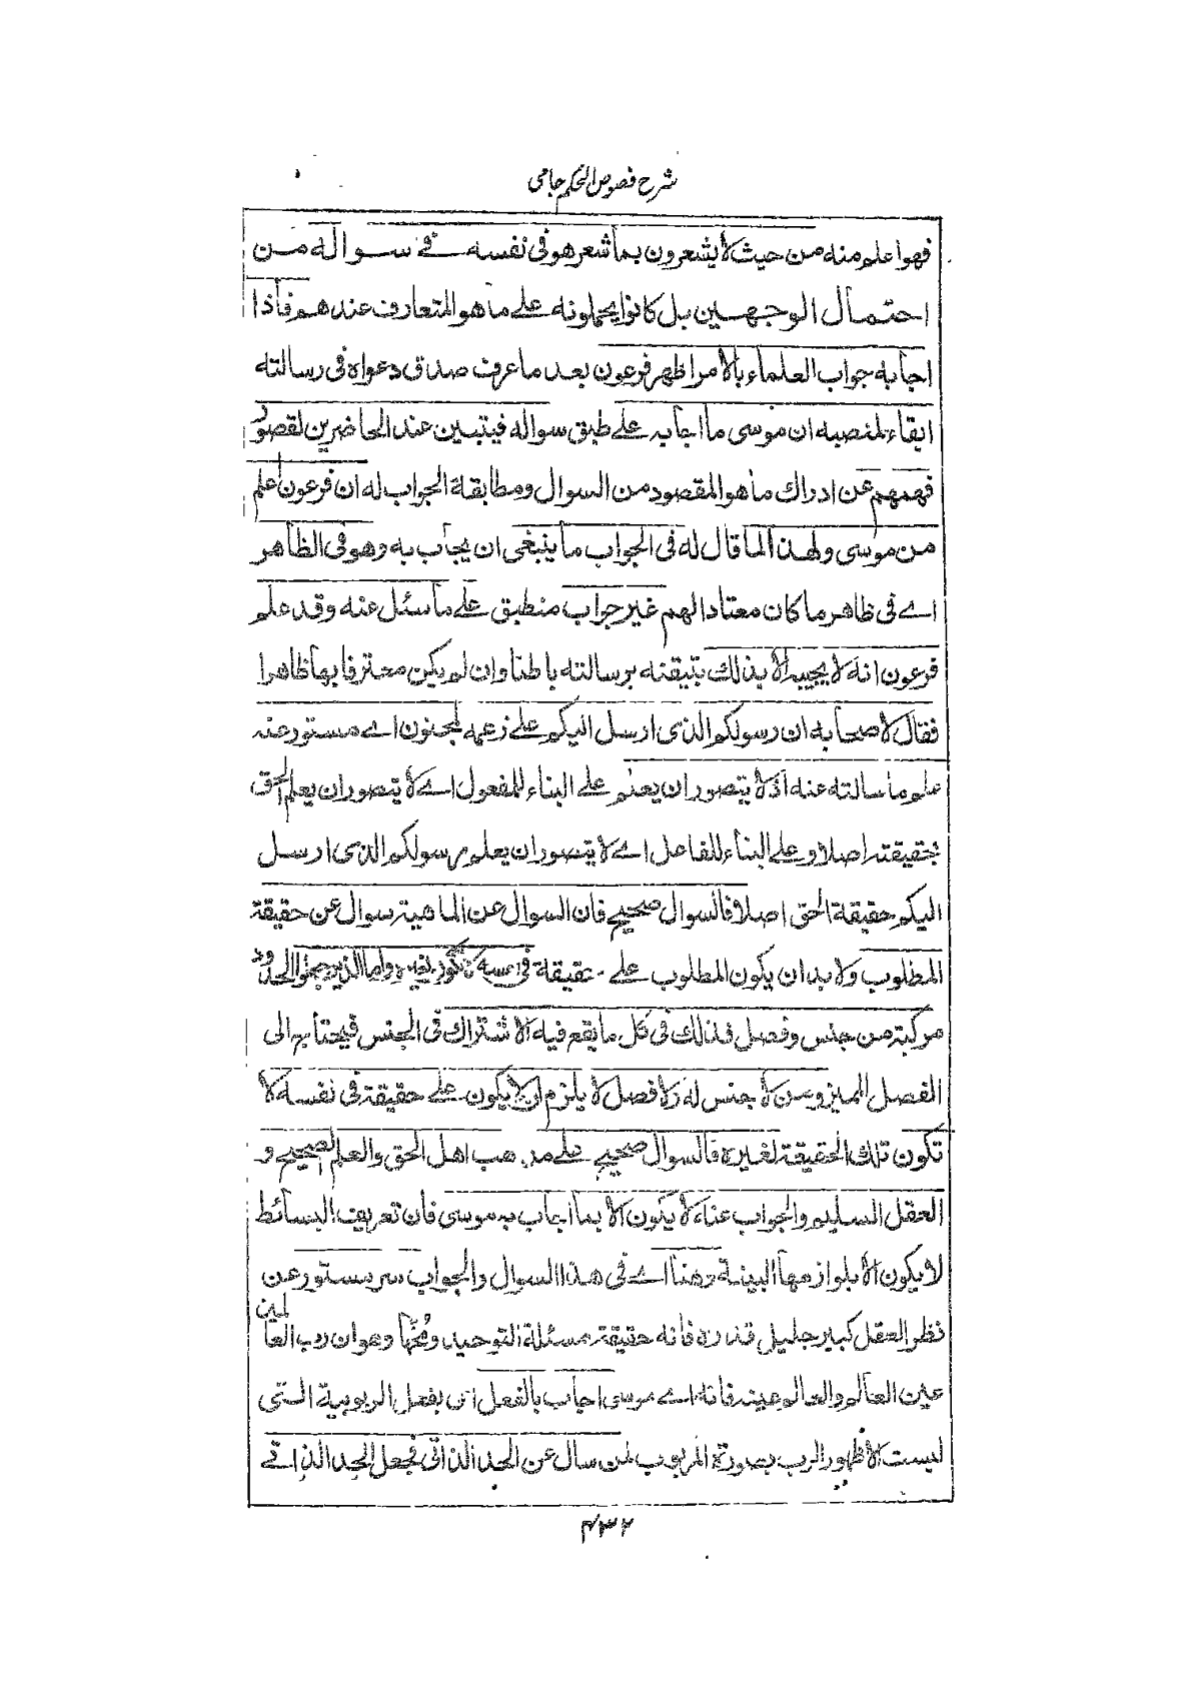 شرح فصوص الحكم جامى
فهوا علم منه من حيث لا يشعرون بما شعر هو فى نفسه فے سواله من
احتمال الوجهين بل كانوا يحملونه علے ما هو المتعارف عندهم فاذا
اجابه جواب العلماء بالامر اظهر فرعون بعد ما عرف صدق دعواه فى رسالته
ابقاء لمنصبه ان موسى ما اجابه علے طبق سواله فيتبين عند الحاضرين لقصور
فهمهم عن ادراك ما هو المقصود من السوال ومطابقة الجواب له ان فرعون اعلم
من موسى ولهذا لما قال له فى الجواب ما ينبغى ان يجاب به وهو فى الظاهر
اے فى ظاهر ما كان معتادا لهم غير جواب منطبق علے ما سئل عنه وقد علم
فرعون انه لا يجيبه الا بذلك بتيقنه برسالته باطنا وان لم يكن معترفا بها ظاهرا
فقال لاصحابه ان رسولكم الذى ارسل اليكم علے زعمه لمجنون اے مستور عنه
علم ما سالته عنه اذ لا يتصور ان يعلم علے البناء للمفعول اے لا يتصور ان يعلم الحق
بحقيقته اصلا وعلے البناء للفاعل اے لا يتصور ان يعلم رسولكم الذى ارسل
اليكم حقيقة الحق اصلا فالسوال صحيح فان السوال عن الماهية سوال عن حقيقة
المطلوب ولا بد ان يكون المطلوب علے حقيقة فى نفسه لغيره واما الذين جعلوا الحدود
مركبة من جنس وفصل فذلك فى كل ما يقع فيه الاشتراك فى الجنس فيحتاج الى
الفصل المميز ومن لا جنس له ولا فصل لا يلزم ان لا يكون علے حقيقة فى نفسه لا
تكون تلك الحقيقة لغيره فالسوال صحيح علے مذهب اهل الحق والعلم الصحيح و
العقل السليم والجواب عنه لا يكون الا بما اجاب به موسى فان تعريف البسائط
لا يكون الا بلوازمها البينة وهنا اے فى هذا السوال والجواب سر مستور عن
نظر العقل كبير جليل قدره فانه حقيقة مسئلة التوحيد ومخها وهو ان رب العالمين
عين العالم والعالم عينه فانه اے موسى اجاب بالفعل اى بفعل الربوبية التى
ليست الا ظهور الرب بصورة المربوب لمن سال عن الحد الذاتى فجعل الحد الذاتے
۴۳۲